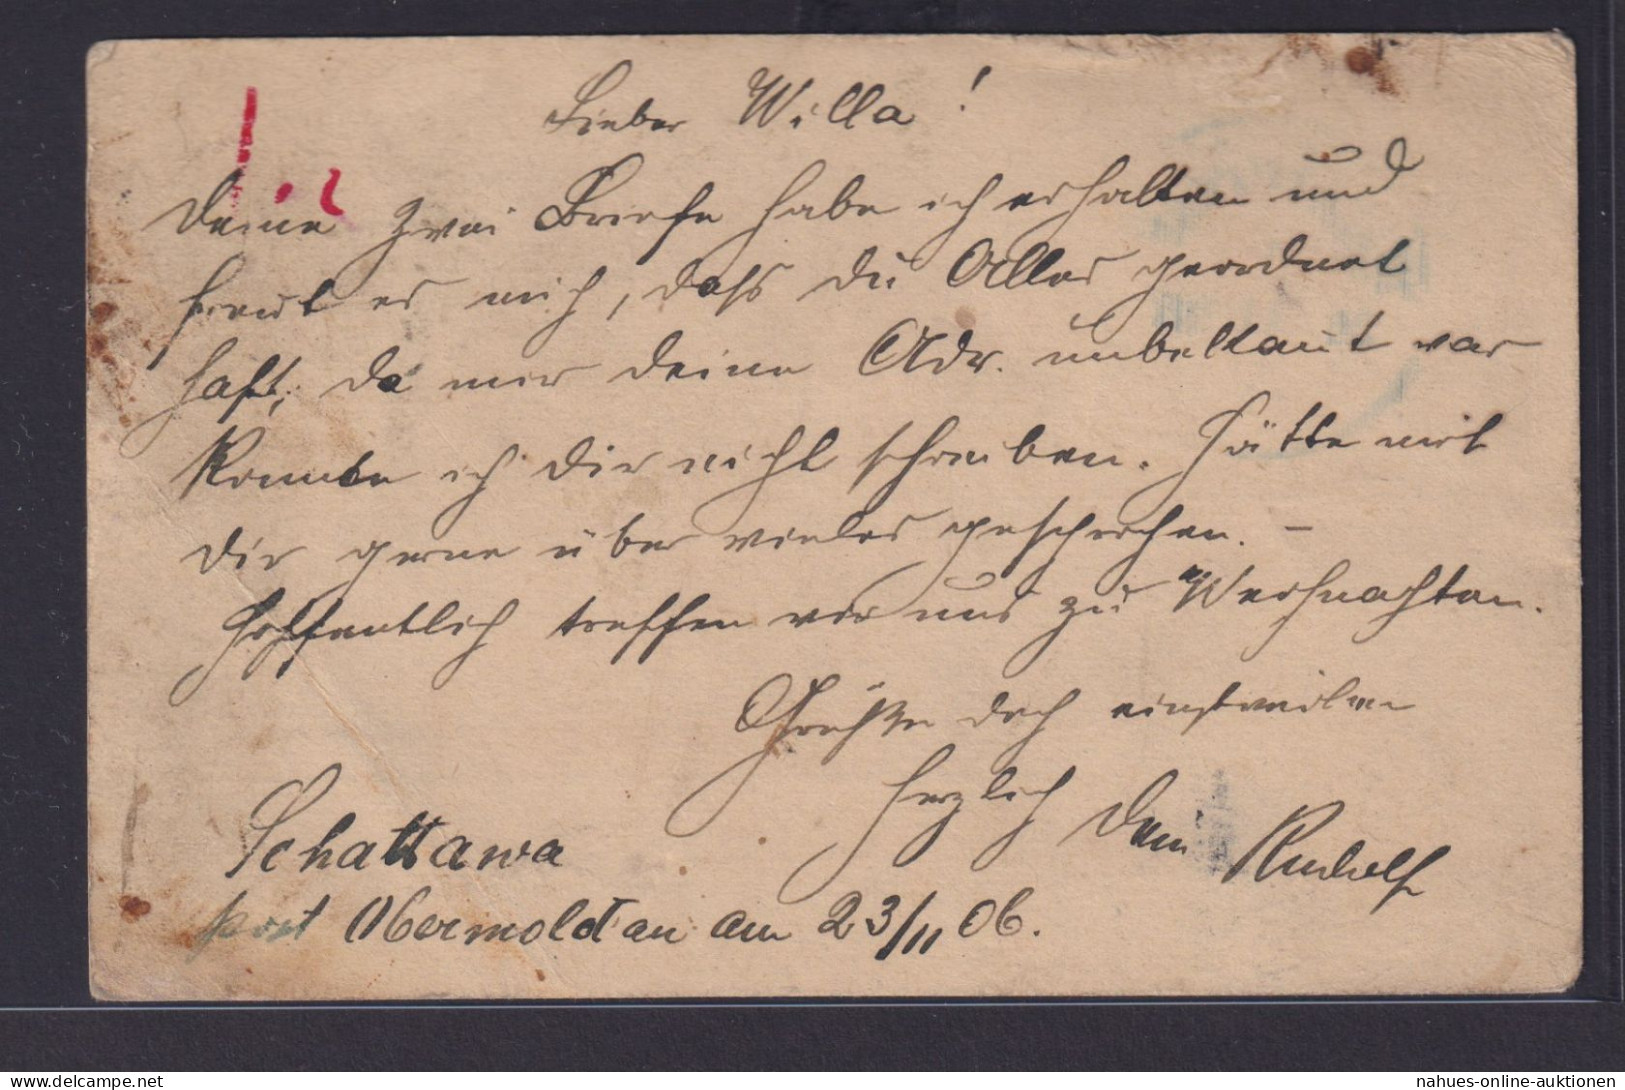 Lieber Willa!
Deine zwei Briefe habe ich erhalten und
freut es mich, dass du Alles geordnet
hast, da mir deine Adr. unbekannt war
konnte ich dir nicht schreiben. Hätte mit
dir gerne über vieles gesprochen. –
Hoffentlich treffen wir uns zu Weihnachten.
Grüße dich einstweilen
herzlich dein Rudolf
Schattawa
post Obermoldau am 23/11 06.
nahues-online-auktionen